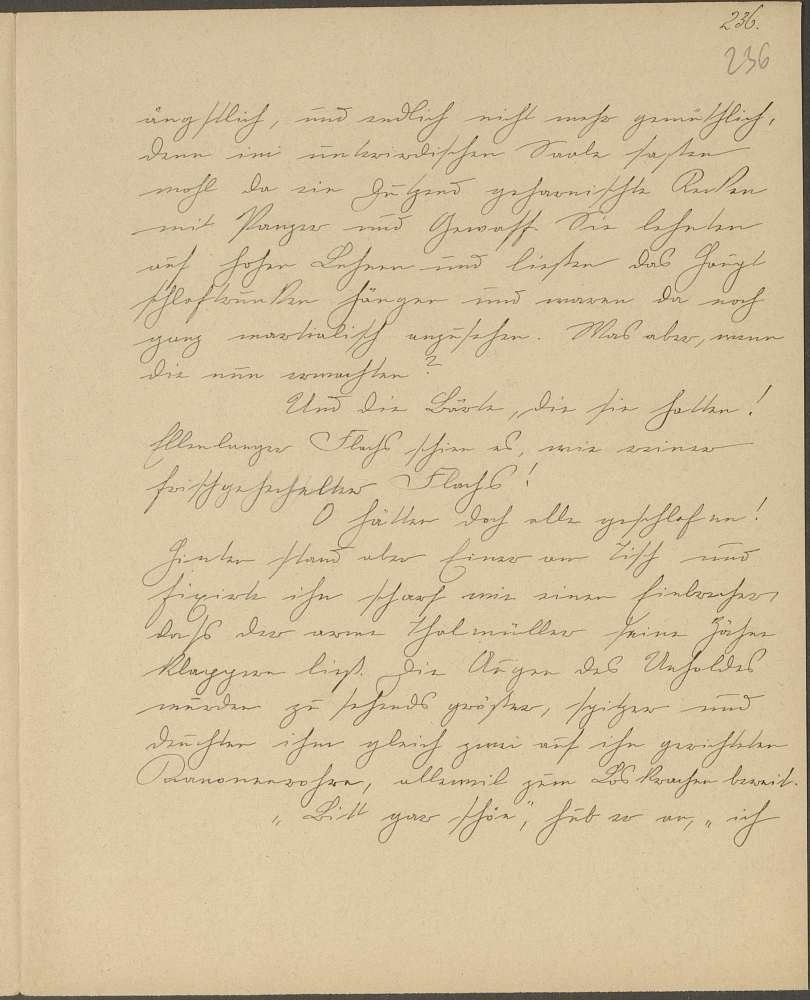 236.
236
ängstlich, und endlich nicht mehr gemüthlich,
denn im unterirdischen Saale saßen
wohl da ein Dutzend geharnischte Recken
mit Panzer und Gewaff. Sie lehnten
auf hohen Lehnen und ließen das Haupt
schlaftrunken hängen und waren da noch
ganz martialisch anzusehen. Was aber, wenn
die nun erwachten?
Und die Bärte, die sie hatten!
Ellenlanger Flachs schien es, wie reiner
frischgehechelter Flachs!
O hätten doch alle geschlafen!
Hinten stand aber Einer am Tisch und
fixirte ihn scharf wie einen Einbrecher,
daß der arme Thalmüller seine Zähne
klappern ließ. Die Augen des Unholdes
wurden zu sehends größer, spitzer und
deuchten ihm gleich zwei auf ihn gerichteten
Kanonenrohre, alleweil zum Loskrachen bereit.
„Bitt gar schön", hub er an, „ich